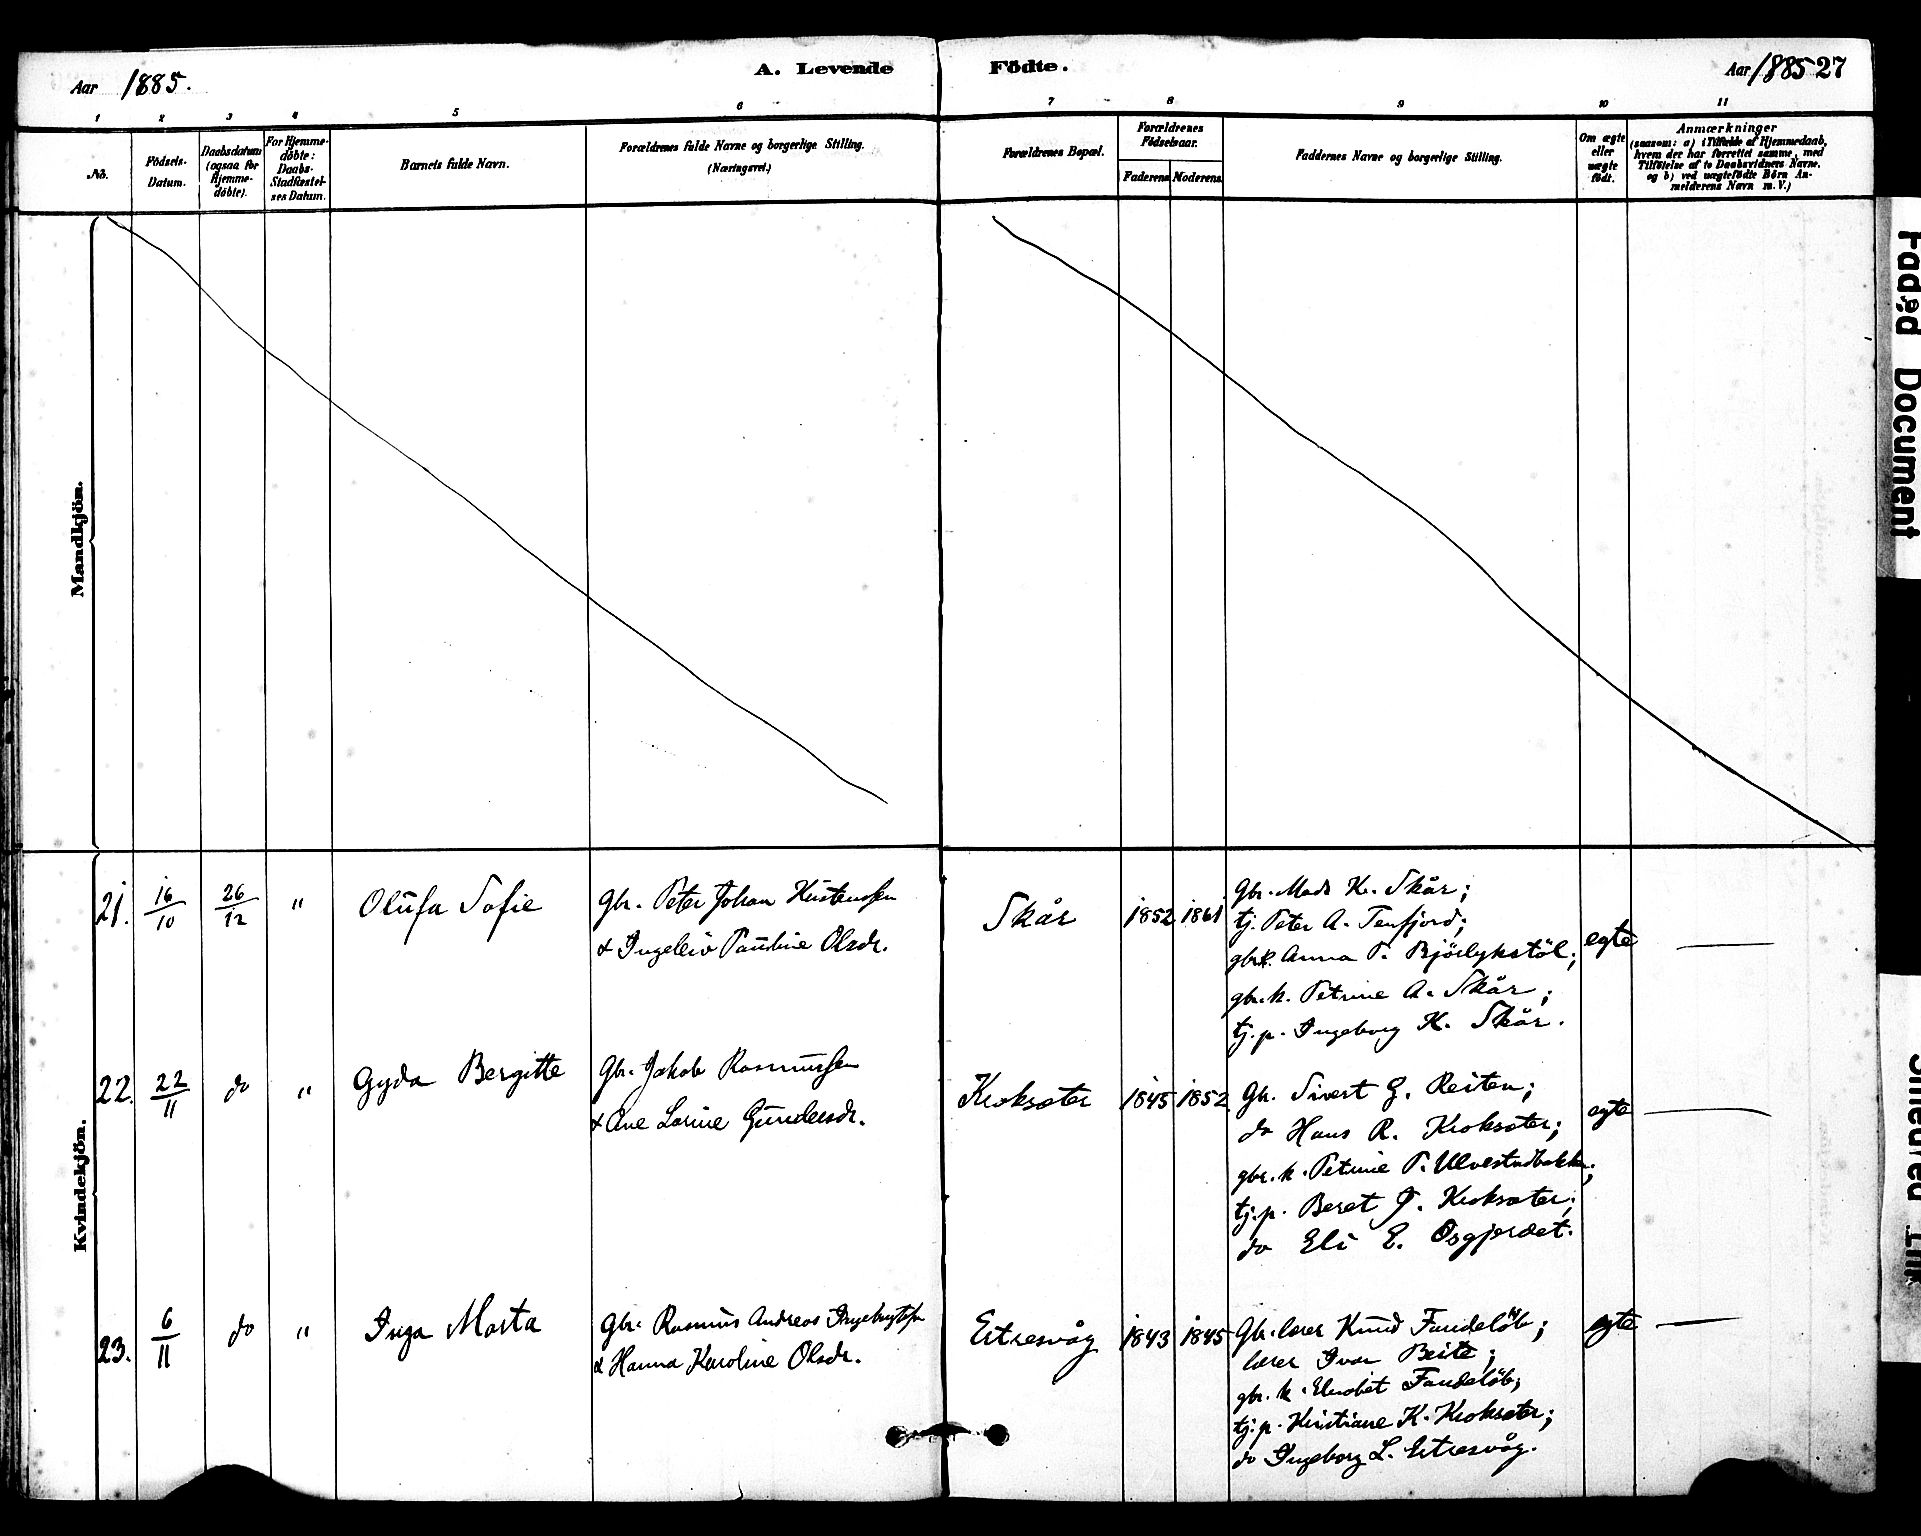 Aar 1885.
A. Levende Födte.
Aar 1885 27
1 2 3 4 5 6 7 8 9 10 11
No.
Födsels-
Datum.
Daabsdatum
(ogsaa for
Hjemme-
döbte).
For Hjemme-
döbte:
Daabs-
Stadfæstel-
ses Datum.
Barnets fulde Navn.
Forældrenes fulde Navne og borgerlige Stilling.
(Næringsvei.)
Forældrenes Bopæl.
Forældrenes
Födselsaar.
Faderens Moderens
Faddernes Navne og borgerlige Stilling.
Om ægte
eller
uægte
födt.
Anmærkninger
(saasom: a) i Tilfælde af Hjemmedaab,
hvem der har forrettet samme, med
Tilföielse af to Daabsvidners Navne.
og b) ved uægtefödte Börn An-
melderens Navn m. V.)
Mandkjön.
Kvindekjön.
21. 16/10 26/12 " Olufa Sofie
Gbr. Peter Johan Kristenssen
& Ingeleiv Pauline Olsdr.
Skår 1852 1861
Gbr. Mads K. Skår;
tj. Peter A. Tenfjord;
gbr.k. Anna P. Bjørlykstöl;
gbr.k. Petrine A. Skår;
tj.p. Ingeborg K. Skår.
egte
22. 22/11 do " Gyda Bergitte
Gbr. Jakob Rasmussen
& Ane Larine Gundersdr.
Kroksæter 1845 1852
Gbr. Sivert G. Reiten;
do Hans R. Kroksæter;
gbr.k. Petrine P. Ulvestadbakke;
tj.p. Beret J. Kroksæter;
do Eli E. Osgjerdet.
egte
23. 6/11 do " Inga Marta
Gbr. Rasmus Andreas Ingebrigtsen
& Hanna Karoline Olsdr.
Eitresvåg 1843 1845
Gbr. lærer Knud Fardelöb;
lærer Ivar Beite;
gbr.k. Elisabet Fardelöb;
tj.p. Kristiane K. Kroksæter;
do Ingeborg L. Eitresvåg.
egte
Faded Document
Smeared Ink